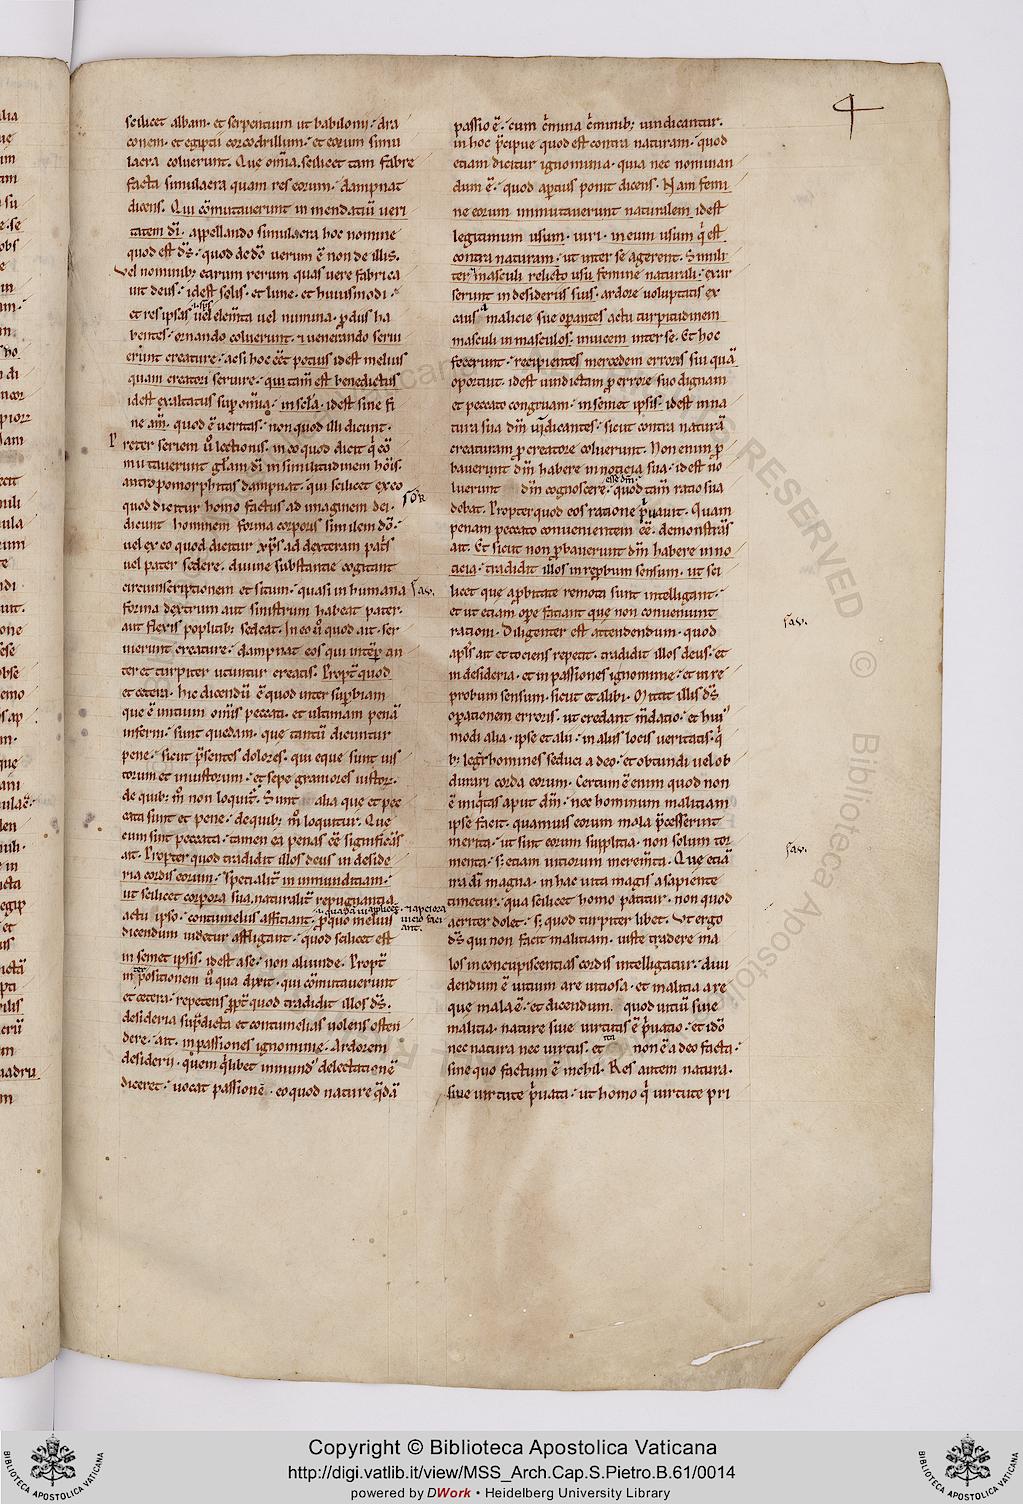 4
scilicet albam· et serpentium ut babilonii· dra
conem· et egiptii corcodrillum· et eorum simu
lacra coluerunt. Que om̄ia scilicet tam fabre
facta simulacra quam res eorum· dampnat
dicens. Qui c̄omutauerunt in mendatiū ueri
tatem dī· appellando simulacra hoc nomine
quod est dſ̄· quod de dō uerum ē non de illis.
Vel nominib; earum rerum quas uere fabrica
uit deus· idest solis· et lune· et huiusmodi·
et res ipsas uel elem̄ta uel numina· ꝓ diis ha
bentes· ornando coluerunt· ⁊ uenerando serui
erunt creature· acsi hoc ēet potius idest melius
quam creatori seruire· qui tam̄ est benedictus
idest exaltatus suꝑ om̄ia· in scl̄a· idest sine fi
ne am̄· quod ē ueritas· non quod illi dicunt·
Preter seriem ū lectionis· in eo quod dicit q̇ cō
mutauerunt gl̄am dī in similitudinem hōīs·
antropomorphitas dampnat· qui scilicet ex eo
quod dicitur homo factus ad imaginem dei·
dicunt hominem forma corporis similem dō·
uel ex eo quod dicitur xp̄s ad dexteram patr̄s
uel pater sedere· diuine substantie cogitant
circumscriptionem et situm· quasi in humana
forma dextrum aut sinistrum habeat pater·
aut flexis poplitib; sedeat. In eo ū quod ait· ser
uierunt creature· dampnat eos qui
ter et turpiter utuntur creatis. Propt̄ quod
et cetera· hic dicendū ē quod inter suꝑbiam
que ē initium om̄is peccati· et ultimam penā
inferni· sunt quedam· que tantū dicuntur
pene· sicut p̄sentes dolores· qui eque sunt ius
torum et iniustorum· et sepe grauiores iustor·
de quib; m̊ non loquit̄. Sunt alia que et pec
cata sunt et pene· de quib; m̊ loquitur. Que
cum sint peccata· tamen ea penas ēe significās
ait. Propter quod tradidit illos deus in deside
ria cordis eorum· specialit̄ in inmunditiam·
ut scilicet corpora sua naturalit̄ repugnantia
actu ipso· contumeliis afficiant· ꝓ quo melius
dicendum uidetur affligant· quod scilicet est
in semet ipsis· idest a se· non aliunde· Propt̄
positionem ū qua dixit· qui cōmutauerunt
et cetera· repetens ꝓpt̄ quod tradidit illos dſ̄·
desideria sup̄dicta et contumelias uolens osten
dere· ait· in passiones ignominie· Ardorem
desiderii· quem q̇libet inmundꝰ delectationē
diceret· uocat passionē· eo quod nature q̄dā
passio ē· cum c̄mina c̄minib; uindicantur.
in hoc p̄cipue quod est contra naturam· quod
etiam dicitur ignominia· qua nec nominan
dum ē· quod aꝑtius ponit dicens· Nam femi
ne eorum inmutauerunt naturalem idest
legitimum usum· uiri· in eum usum q̇ est
contra naturam· ut inter se agerent. Simili
ter masculi relicto usu femine naturali· exar
serunt in desideriis suis· ardore uoluptatis ex
malicie sue oꝑantes actu turpitudinem
masculi in masculos· inuicem inter se· Et hoc
fecerunt· recipientes mercedem erroris sui quā
oportuit· idest uindictam ꝓ errore suo dignam
et peccato congruam· in semet ipsis· idest in na
tura sua dm̄ uindicantes· sicut contra naturā
creaturam ꝓ creatore coluerunt. Non enim ꝓ
bauerunt dm̄ habere in noticia sua· idest no
luerunt dm̄ cognoscere· quod tam̄ ratio sua
debat. Propter quod eos ratione p̄uauit. Quam
penam peccato conuenientem ēe· demonstrās
ait. Et sicut non ꝓbauerunt dm̄ habere in no
ticia· tradidit illos in reprobum sensum· ut sci
licet que a probitate remota sunt intelligant·
et ut etiam oꝑe faciant que non conueniunt
rationi· Diligenter est attendendum· quod
apl̄s ait et tociens repetit· tradidit illos deus· et
in desideria· et in passiones ignominie· et in re
probum sensum· sicut et alibi· Mittit illis dſ̄
oꝑationem erroris· ut credant m̄datio· et huiꝰ
modi alia· ipse et alii· in aliis locis ueritatis· q̇
b; legit̄ homines seduci a deo· et obtundi uel ob
durari corda eorum. Certum ē enim quod non
ē iniq̇tas aput dm̄· nec hominum malitiam
ipse facit· quamuis eorum mala p̄cesserint
merita· ut sint eorum supplitia· non solum tor
menta· s; etiam uitiorum merem̄ta. Que etiā
ira dī magna· in hac uita magis a sapiente
timetur· qua scilicet homo patitur· non quod
acriter dolet· s; quod turpiter libet. Vt ergo
dſ̄ qui non facit malitiam· iuste tradere ma
los in concupiscentias cordis intelligatur· diui
dendum ē uitium a re uitiosa· et malitia a re
que mala ē· et dicendum quod uitiū siue
malitia· nature siue uirtutis ē p̄uatio· et idō
nec natura nec uirtus· et non ē a deo facta·
sine quo factum ē nichil· Res autem natura·
siue uirtute p̄uata· ut homo q̇ uirtute pri
Copyright © Biblioteca Apostolica Vaticana
http://digi.vatlib.it/view/MSS_Arch.Cap.S.Pietro.B.61/0014
powered by DWork • Heidelberg University Library